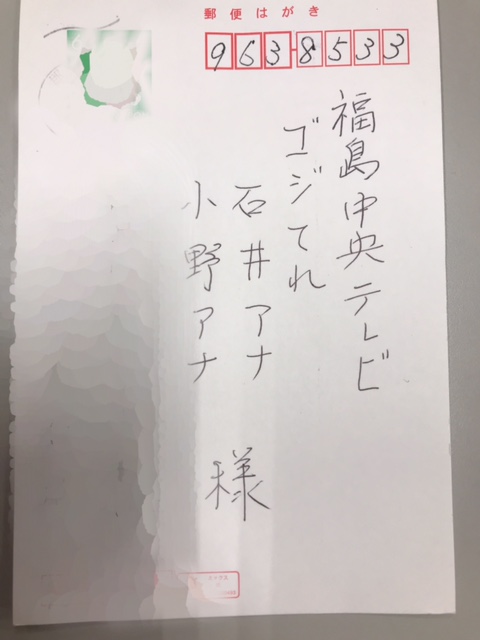 郵便はがき
9638533
福島中央テレビ
ゴジてれ
石井アナ
小野アナ
様